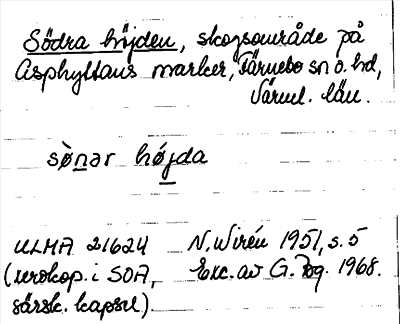 Södra höjden, skogsområde på
Asphyttans marker, Färnebo sn o. hd,
Värml. län.
sònar hójda
ULMA 21624 N. Wirén 1951, s. 5
(xerokop. i SOA, Exc. av G. 1968.
särsk. kapsel).